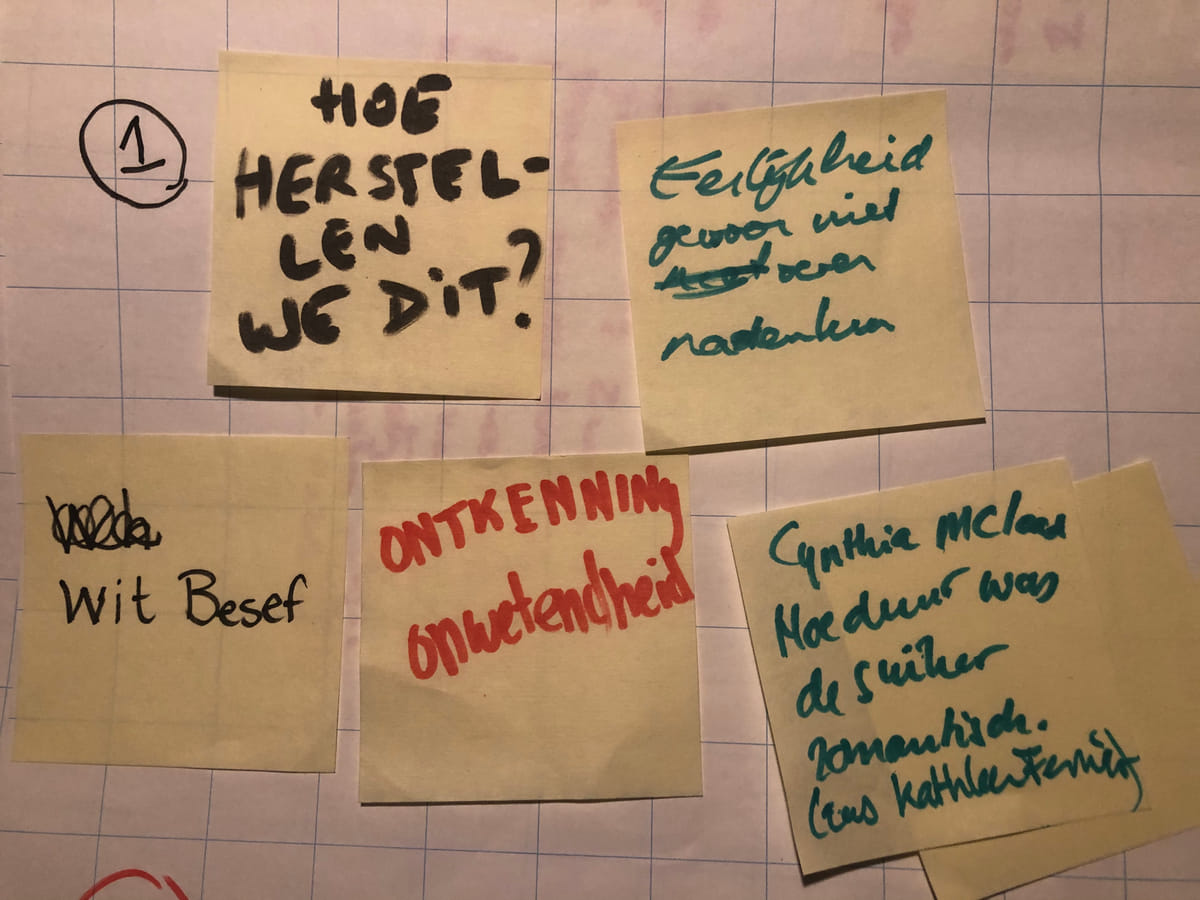 1
HOE
HERSTEL-
LEN
WE DIT?
Eerlijkheid
gewoon niet
over
nadenken
Wit Besef
ONTKENNING
onwetendheid
Cynthia MCleod
Hoe duur was
de suiker
romantisch.
Kathleen Ferrier)